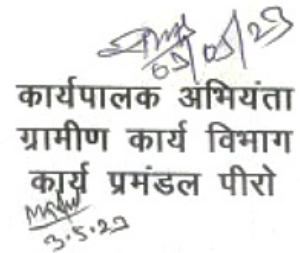 03/05/23
कार्यपालक अभियंता
ग्रामीण कार्य विभाग
कार्य प्रमंडल पीरो
3.5.23